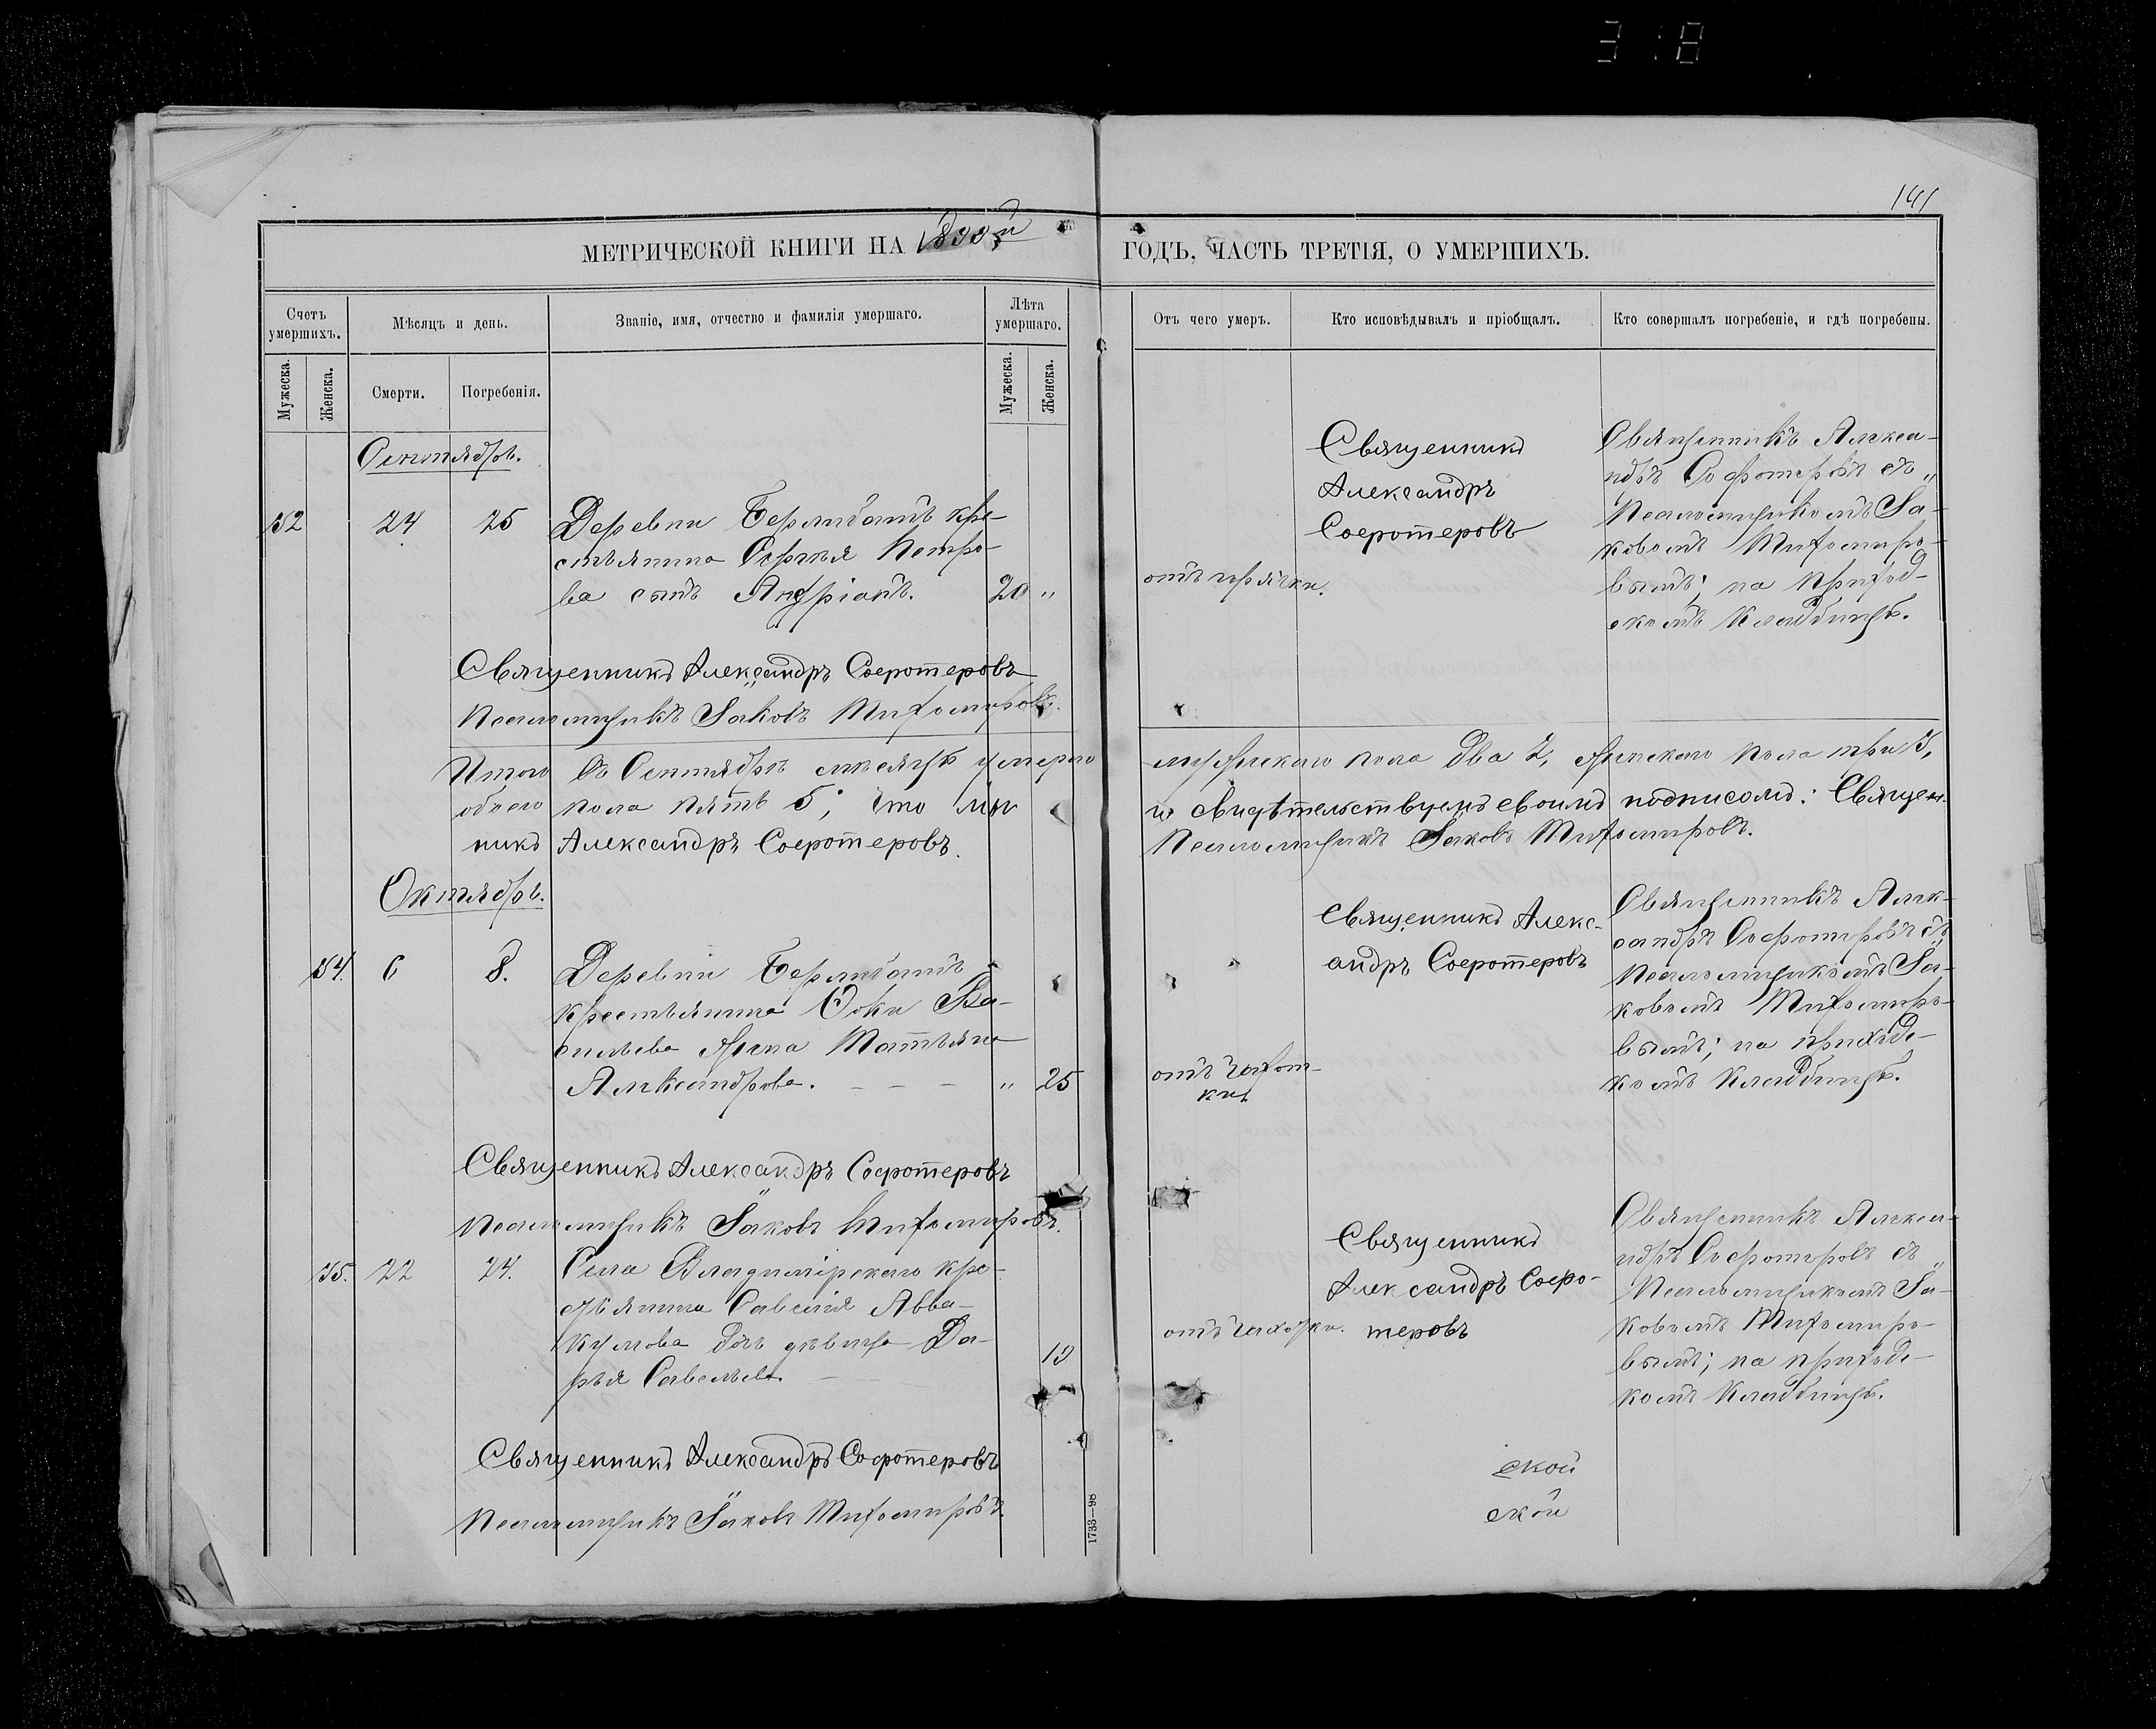 318
141
МЕТРИЧЕСКОЙ КНИГИ НА 1899й ГОДЪ, ЧАСТЬ ТРЕТІЯ, О УМЕРШИХЪ.
Счетъ умершихъ.
Мужеска.
Женска.
Мѣсяцъ и день.
Смерти.
Погребенія.
Званіе, имя, отчество и фамилія умершаго.
Лѣта умершаго.
Мужеска.
Женска.
Отъ чего умеръ.
Кто исповѣдывалъ и пріобщалъ.
Кто совершалъ погребеніе, и гдѣ погребены.
Сентябрь.
52 24 25 Деревни кре-
стьянина Сергѣя Петро-
ва сынъ Андріанъ. 20 "
отъ горячки.
Священникъ
Александръ
Сосротеровъ
Священникъ Алекса-
ндръ Сосротеровъ съ
Псаломщикомъ Іа-
ковомъ Тихомиро-
вымъ; на приход-
скомъ Кладбищѣ.
Священникъ Александръ Сосротеровъ
Псаломщикъ Іаковъ Тихомировъ.
Итого въ Сентябрѣ мѣсяцѣ умерло мужескаго пола два 2, женскаго пола три 3,
обоего пола пять 5; что мы и свидѣтельствуемъ своимъ подписомъ: Священ-
никъ Александръ Сосротеровъ. Псаломщикъ Іаковъ Тихомировъ.
Октябрь.
54. 6 8. Деревни
крестьянина Фоки Ва-
сильева жена Татьяна
Александрова. - - - " 25
отъ чахот-
ки.
Священникъ Алекс-
андръ Сосротеровъ
Священникъ Алек-
сандръ Сосротеровъ съ
Псаломщикомъ Іа-
ковомъ Тихомиро-
вымъ; на приходс-
комъ Кладбищѣ.
Священникъ Александръ Сосротеровъ
Псаломщикъ Іаковъ Тихомировъ.
55. 22 24. Села Владимірскаго кре-
стьянина Савелія Авва-
кумова дочь дѣвица Да-
рья Савельева. - 19
отъ чахотки.
Священникъ
Александръ Сосро-
теровъ
Священникъ Алекса-
ндръ Сосротеровъ съ
Псаломщикомъ Іа-
ковомъ Тихомиро-
вымъ; на приходс-
комъ Кладбищѣ.
Священникъ Александръ Сосротеровъ
Псаломщикъ Іаковъ Тихомировъ.
ской
ской
1733—98